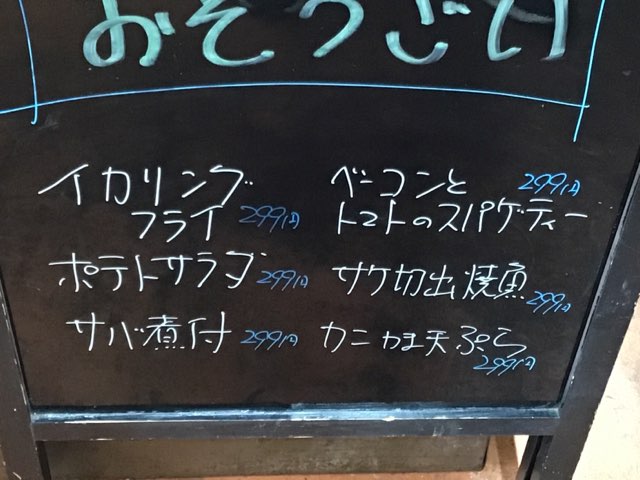 おそうざい
イカリング
フライ 299円
ポテトサラダ 299円
サバ煮付 299円
ベーコンと 299円
トマトのスパゲティー
サケ切出焼魚
299円
カニカマ天ぷら
299円